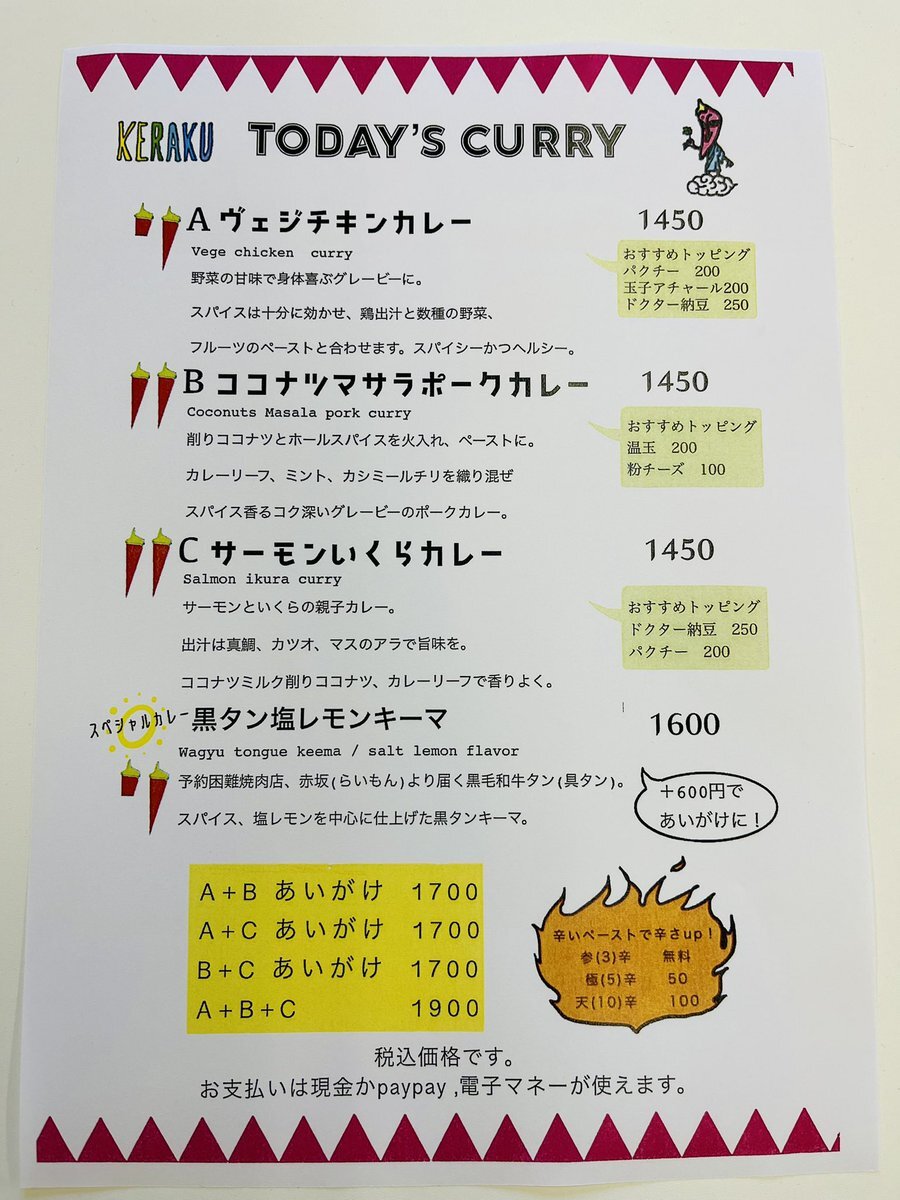 KERAKU TODAY'S CURRY
A ヴェジチキンカレー 1450
Vege chicken curry
野菜の甘味で身体喜ぶグレービーに。
スパイスは十分に効かせ、鶏出汁と数種の野菜、
フルーツのペーストと合わせます。スパイシーかつヘルシー。
おすすめトッピング
パクチー 200
玉子アチャール200
ドクター納豆 250
B ココナツマサラポークカレー 1450
Coconuts Masala pork curry
削りココナツとホールスパイスを火入れ、ペーストに。
カレーリーフ、ミント、カシミールチリを織り混ぜ
スパイス香るコク深いグレービーのポークカレー。
おすすめトッピング
温玉 200
粉チーズ 100
C サーモンいくらカレー 1450
Salmon ikura curry
サーモンといくらの親子カレー。
出汁は真鯛、カツオ、マスのアラで旨味を。
ココナツミルク削りココナツ、カレーリーフで香りよく。
おすすめトッピング
ドクター納豆 250
パクチー 200
スペシャルカレー 黒タン塩レモンキーマ 1600
Wagyu tongue keema / salt lemon flavor
予約困難焼肉店、赤坂(らいもん)より届く黒毛和牛タン(具タン)。
スパイス、塩レモンを中心に仕上げた黒タンキーマ。
+600円で
あいがけに!
A+B あいがけ 1700
A+C あいがけ 1700
B+C あいがけ 1700
A+B+C 1900
辛いペーストで辛さup!
参(3)辛 無料
極(5)辛 50
天(10)辛 100
税込価格です。
お支払いは現金かpaypay ,電子マネーが使えます。